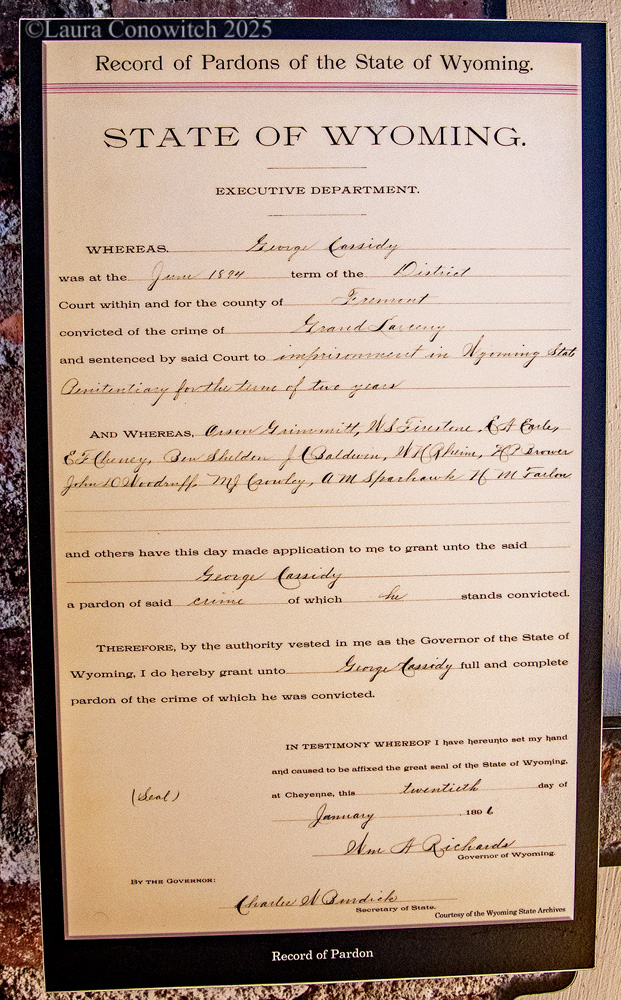 ©Laura Conowitch 2025
Record of Pardons of the State of Wyoming.
STATE OF WYOMING.
EXECUTIVE DEPARTMENT.
WHEREAS, George Cassidy
was at the June 1894 term of the District
Court within and for the county of Fremont
convicted of the crime of Grand Larceny
and sentenced by said Court to imprisonment in Wyoming State
Penitentiary for the term of two years
AND WHEREAS, Orson Grimmitt, W S Firestone, E A Earle,
E F Cheney, Ben Sheldon J C Baldwin, W H Rheim, H P Brower
John D Woodruff, M J Crowley, A M Sparhawk H M Farlow
and others have this day made application to me to grant unto the said
George Cassidy
a pardon of said crime of which he stands convicted.
THEREFORE, by the authority vested in me as the Governor of the State of
Wyoming, I do hereby grant unto George Cassidy full and complete
pardon of the crime of which he was convicted.
IN TESTIMONY WHEREOF I have hereunto set my hand
and caused to be affixed the great seal of the State of Wyoming,
(Seal) at Cheyenne, this twentieth day of
January 1896
Wm A Richards
Governor of Wyoming.
BY THE GOVERNOR:
Charles W Burdick
Secretary of State.
Courtesy of the Wyoming State Archives
Record of Pardon